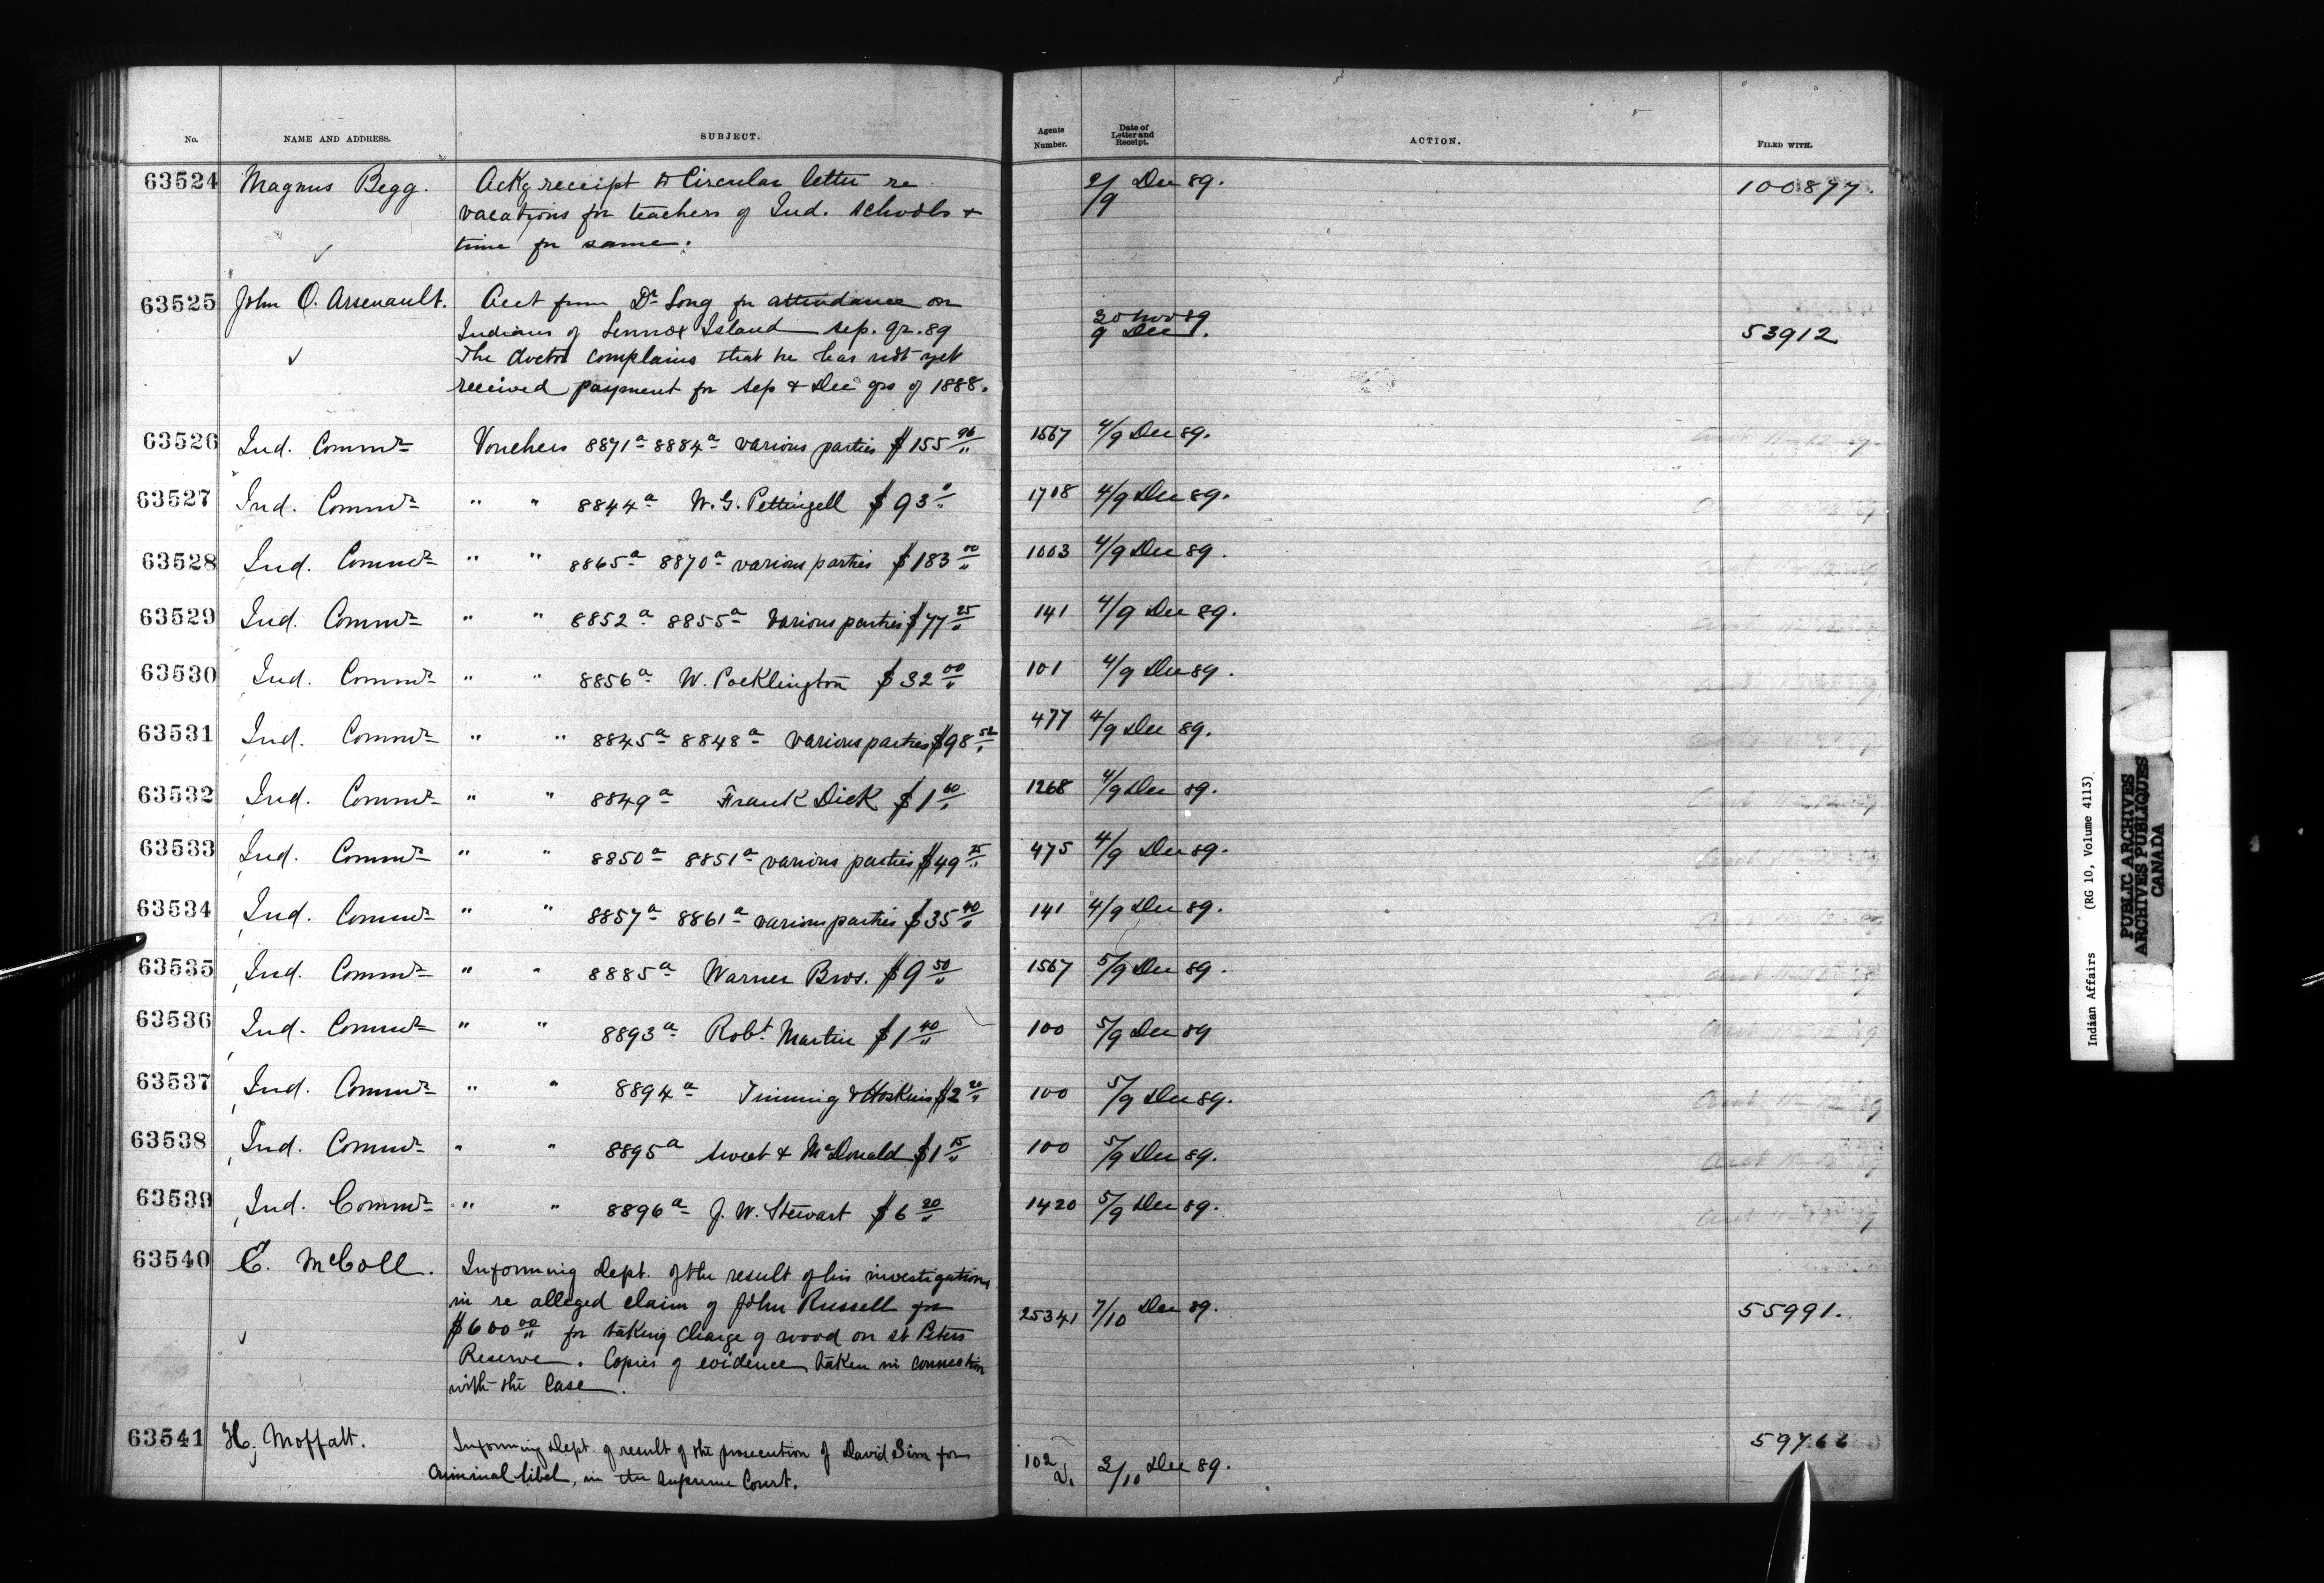 No. NAME AND ADDRESS. SUBJECT. Agents Number. Date of Letter and Receipt. ACTION. FILED WITH.
63524 Magnus Begg. Ackg receipt to Circular letter re 2/9 Dec 89. 100877.
vacations for teachers of Ind. schools &
time for same.
63525 John O. Arsenault. Acct from Dr Long for attendance on 30 Nov 89
Indians of Lennox Island Sep. qr. 89 9 Dec 53912
The doctor complains that he has not yet
received payment for Sep & Dec qrs of 1888.
63526 Ind. Commr Vouchers 8871a 8884a various parties $155 96 1567 4/9 Dec 89.
63527 Ind. Commr " " 8844a W. G. Pettingell $93 1708 4/9 Dec 89.
63528 Ind. Commr " " 8865a 8870a various parties $183 00 1003 4/9 Dec 89.
63529 Ind. Commr " " 8852a 8855a various parties $77 25 141 4/9 Dec 89.
63530 Ind. Commr " " 8856a W. Pocklington $32 00 101 4/9 Dec 89.
63531 Ind. Commr " " 8845a 8848a various parties $98 52 477 4/9 Dec 89.
63532 Ind. Commr " " 8849a Frank Dick $1 60 1268 4/9 Dec 89.
63533 Ind. Commr " " 8850a 8851a various parties $49 25 475 4/9 Dec 89.
63534 Ind. Commr " " 8857a 8861a various parties $35 40 141 4/9 Dec 89.
63535 Ind. Commr " " 8885a Warner Bros. $9 50 1567 5/9 Dec 89.
63536 Ind. Commr " " 8893a Robt Martin $1 40 100 5/9 Dec 89
63537 Ind. Commr " " 8894a Tinning & Hoskins $2 20 100 5/9 Dec 89.
63538 Ind. Commr " " 8895a Sweet & McDonald $1 15 100 5/9 Dec 89.
63539 Ind. Commr " " 8896a J. W. Stewart $6 20 1420 5/9 Dec 89.
63540 E. McColl. Informing Dept. of the result of his investigation
in re alleged claim of John Russell for 25341 7/10 Dec 89. 55991.
$600 00 for taking charge of wood on St Peters
Reserve. Copies of evidence taken in connection
with the case.
63541 H. Moffatt. Informing Dept. of result of the prosecution of David Sim for 59766
criminal libel, in the Supreme Court. 102 3/10 Dec 89.
Indian Affairs (RG 10, Volume 4113)
PUBLIC ARCHIVES
ARCHIVES PUBLIQUES
CANADA